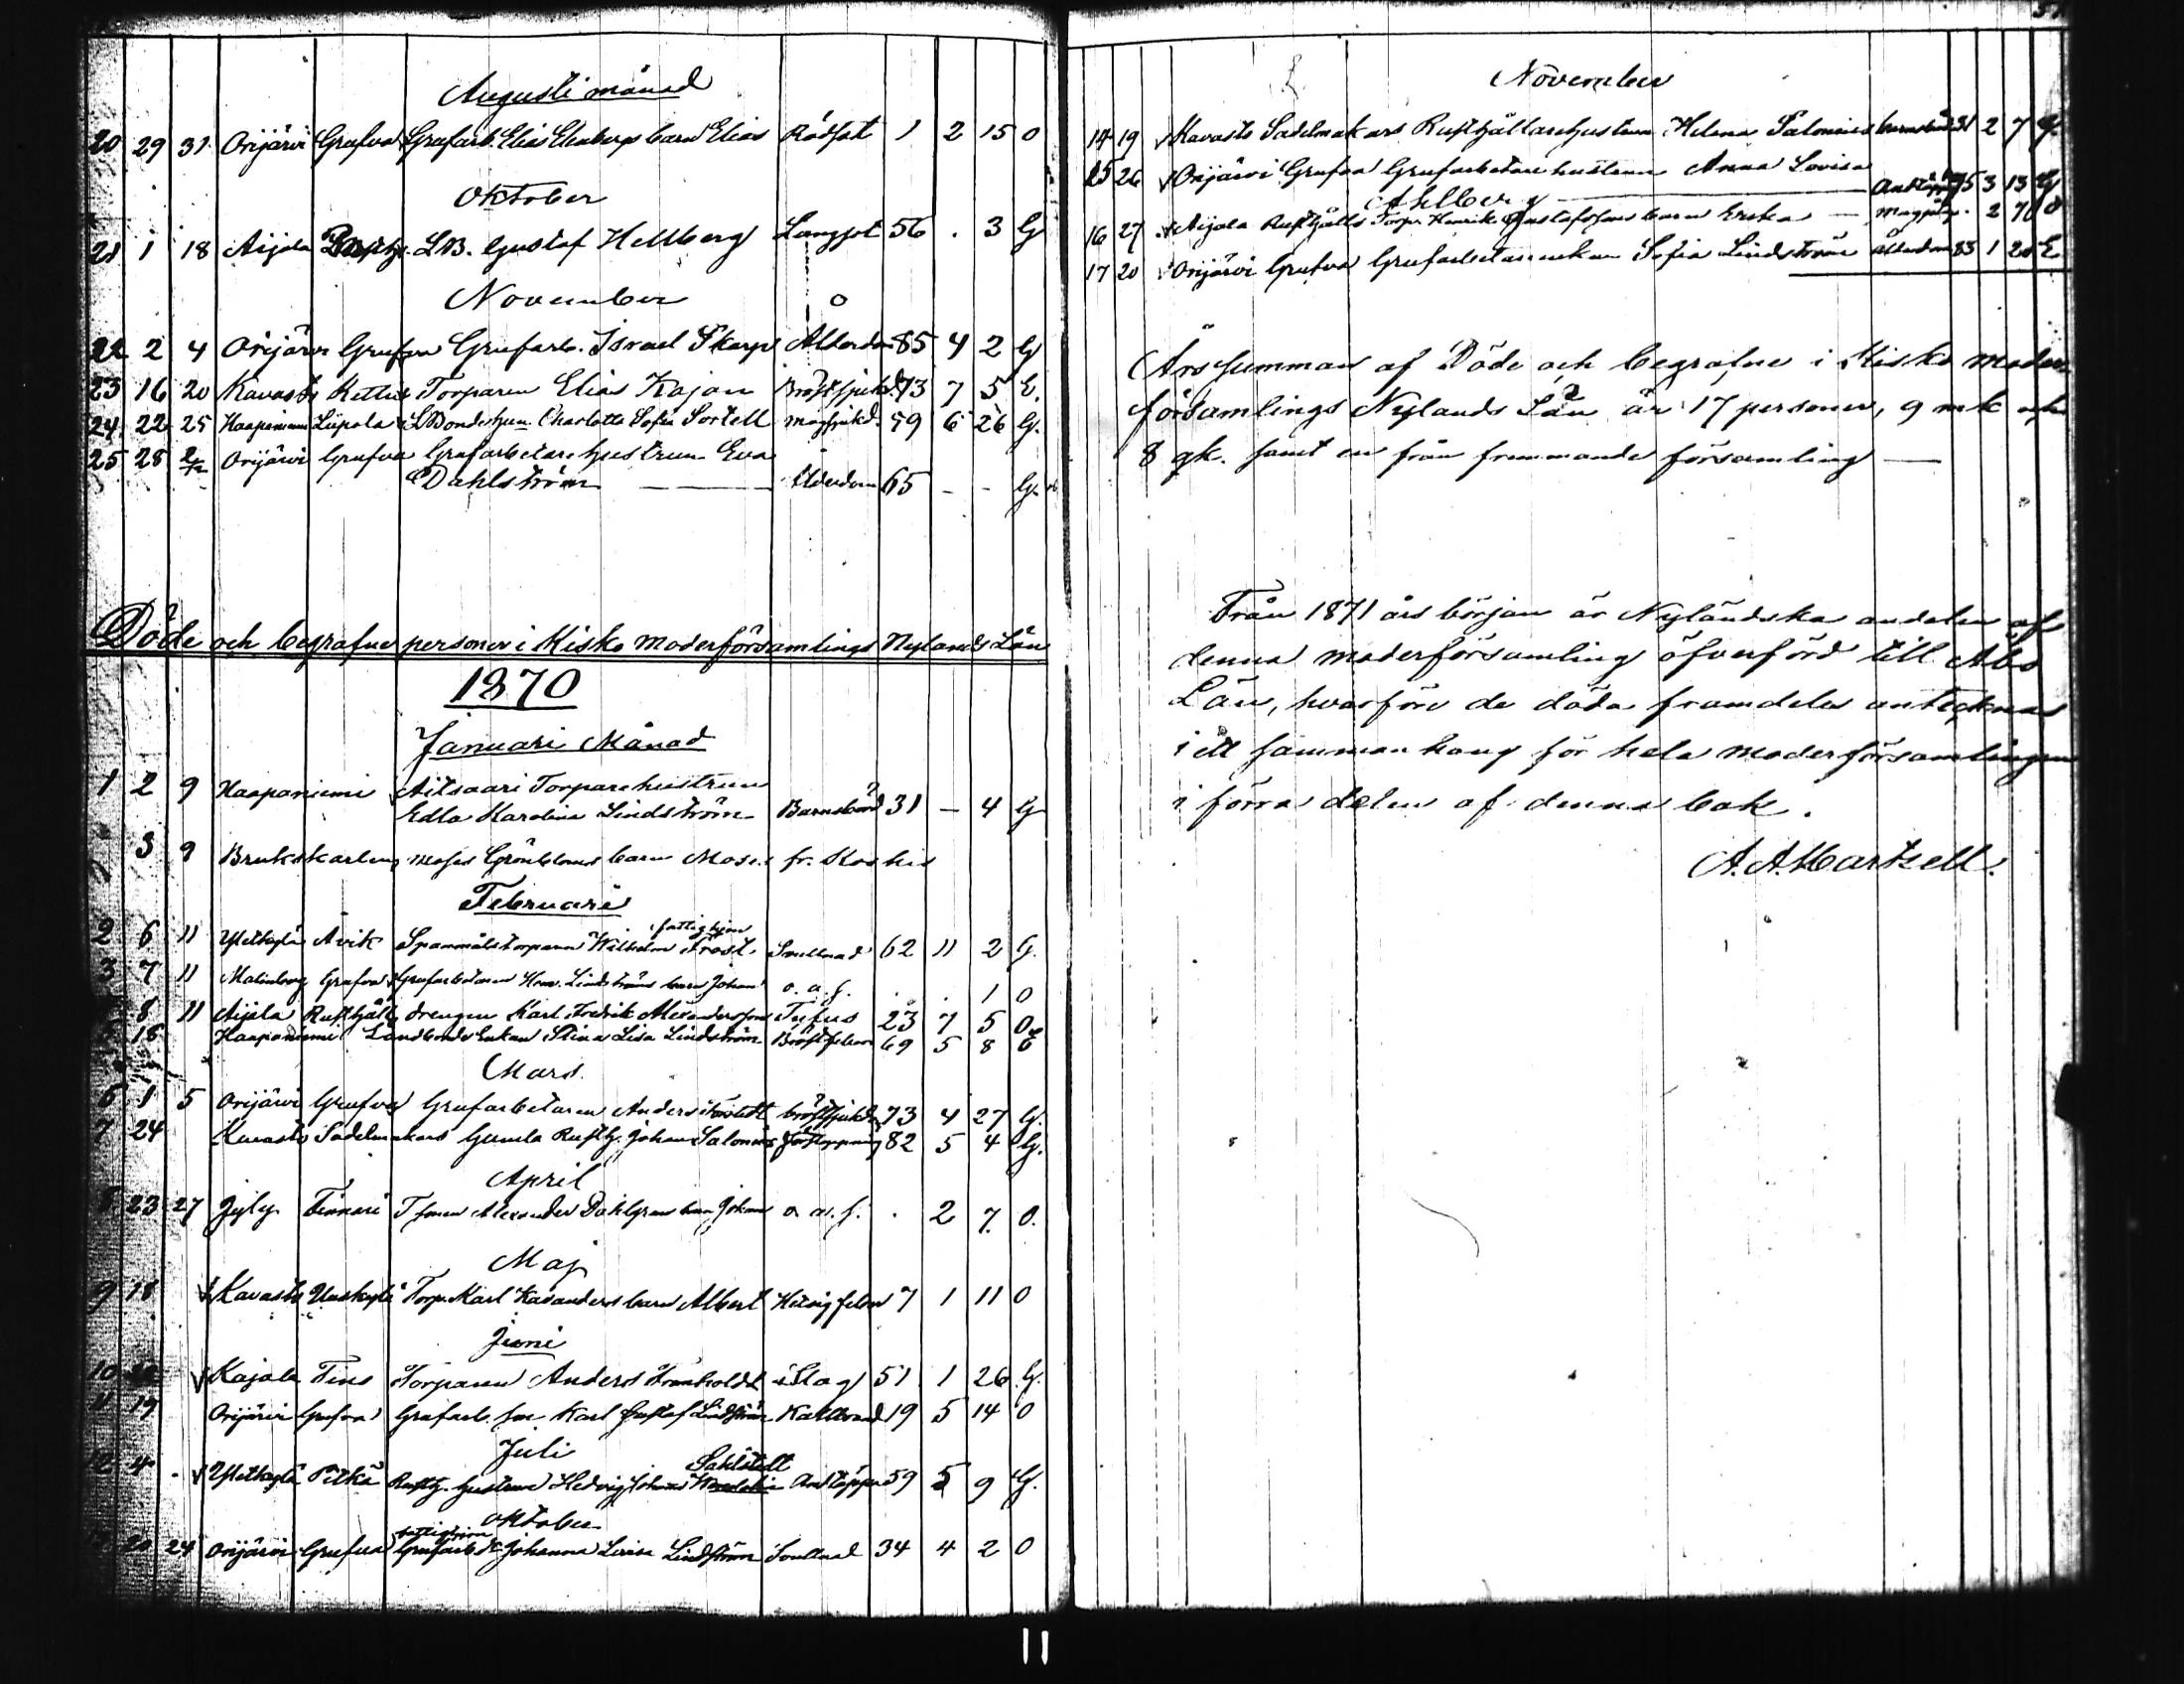 Augusti månad
20 29 31 Orijärvi Grufva Grufarb. Elias Ekbergs barn Elias Rödsot 1 2 15 O
Oktober
21 1 18 Aijala LB. Gustaf Hellberg Lungsot 56 . 3 G
November
22 2 4 Orijärvi Grufva Grufarb. Israel Skarp Ålderdom 85 4 2 G
23 16 20 Kavasto Torparen Elias Kajan Bröstsjukd. 73 7 5 E.
24 22 25 Haapaniemi Liipola LBondehun. Charlotta Sofia Sortell magsjukd. 59 6 26 G.
25 28 2/12 Orijärvi Grufva Grufarbetare hustrun Eva
Dahlström — Ålderdom 65 - - G.
Döde och begrafne personer i Kisko Moderförsamlings Nylands Län
1870
Januari Månad
1 2 9 Haapaniemi Aitsaari Torparehustrun
Edla Karolina Lindström Barnsbörd 31 — 4 G
3 9 Brukskarlen Moses Grönbloms barn Moses fr. Koskis
Februari
fattighjon
2 6 11 Yletkylä Arik Spanmålstorparen Wilhelm Frost Svullnad 62 11 2 G.
3 7 11 Malmberg Grufva Grufarbetaren Lindströms barn Johan o. a. s. . . 1 O
8 11 Aijala Rusthålls drengen Karl Fredrik Alexandersson Tyfus 23 7 5 O
18 Haapaniemi Landbonde Enkan Stina Lisa Lindström Bröstfeber 69 5 8 E
Mars.
6 1 5 Orijärvi Grufva Grufarbetaren Anders bröstsjukd. 73 4 27 G.
7 24 Kavasto Sadelmakars Gamla Rusth. Johan Salonius 82 5 4 G.
April
8 23 27 Jyly Tinnari Alexander Dahlgrens barn Johan o. a. s. . 2 7 O.
Maj
9 18 Kavasto Torp. Karl Kasanders barn Albert Hetsig feber 7 1 11 O
Juni
10 Kajala Tins Torparen Anders Slag 51 1 26 G.
11 19 Orijärvi Grufva Grufarb. son Karl Gustaf Lindström Kallbrand 19 5 14 O
Juli
Sahlstedt
12 4 Yletkylä Pitkä Rusth. hustrun Hedvig Johanna Andtäppa 59 5 9 G.
Oktober
20 24 Orijärvi Grufva Johanna Lovisa Lindström Svullnad 34 4 2 O
November
14 19 Kavasto Sadelmakars Rusthållarehustrun Helena Salonius barnsbörd 31 2 7 G.
15 26 Orijärvi Grufva Grufarbetare hustrun Anna Lovisa
Ahlberg — Andtäppa 75 3 13 G
16 27 Aijala Rusthålls Torp. Henrik Gustafssons barn Erika — . 2 7 O
17 20 Orijärvi Grufva Grufarbetareenkan Sofia Lindström ålderdom 83 1 20 E.
Årssumman af Döde och begrafne i Kisko moder
församlings Nylands Län är 17 personer, 9 mk och
8 qk. samt en från frammande församling —
Från 1871 års början är Nyländska andelen af
denna moderförsamling öfverförd till Åbo
Län, hvarföre de döda framdeles antecknas
i ett sammanhang för hela moderförsamlingen
i förra delen af denna bok.
11